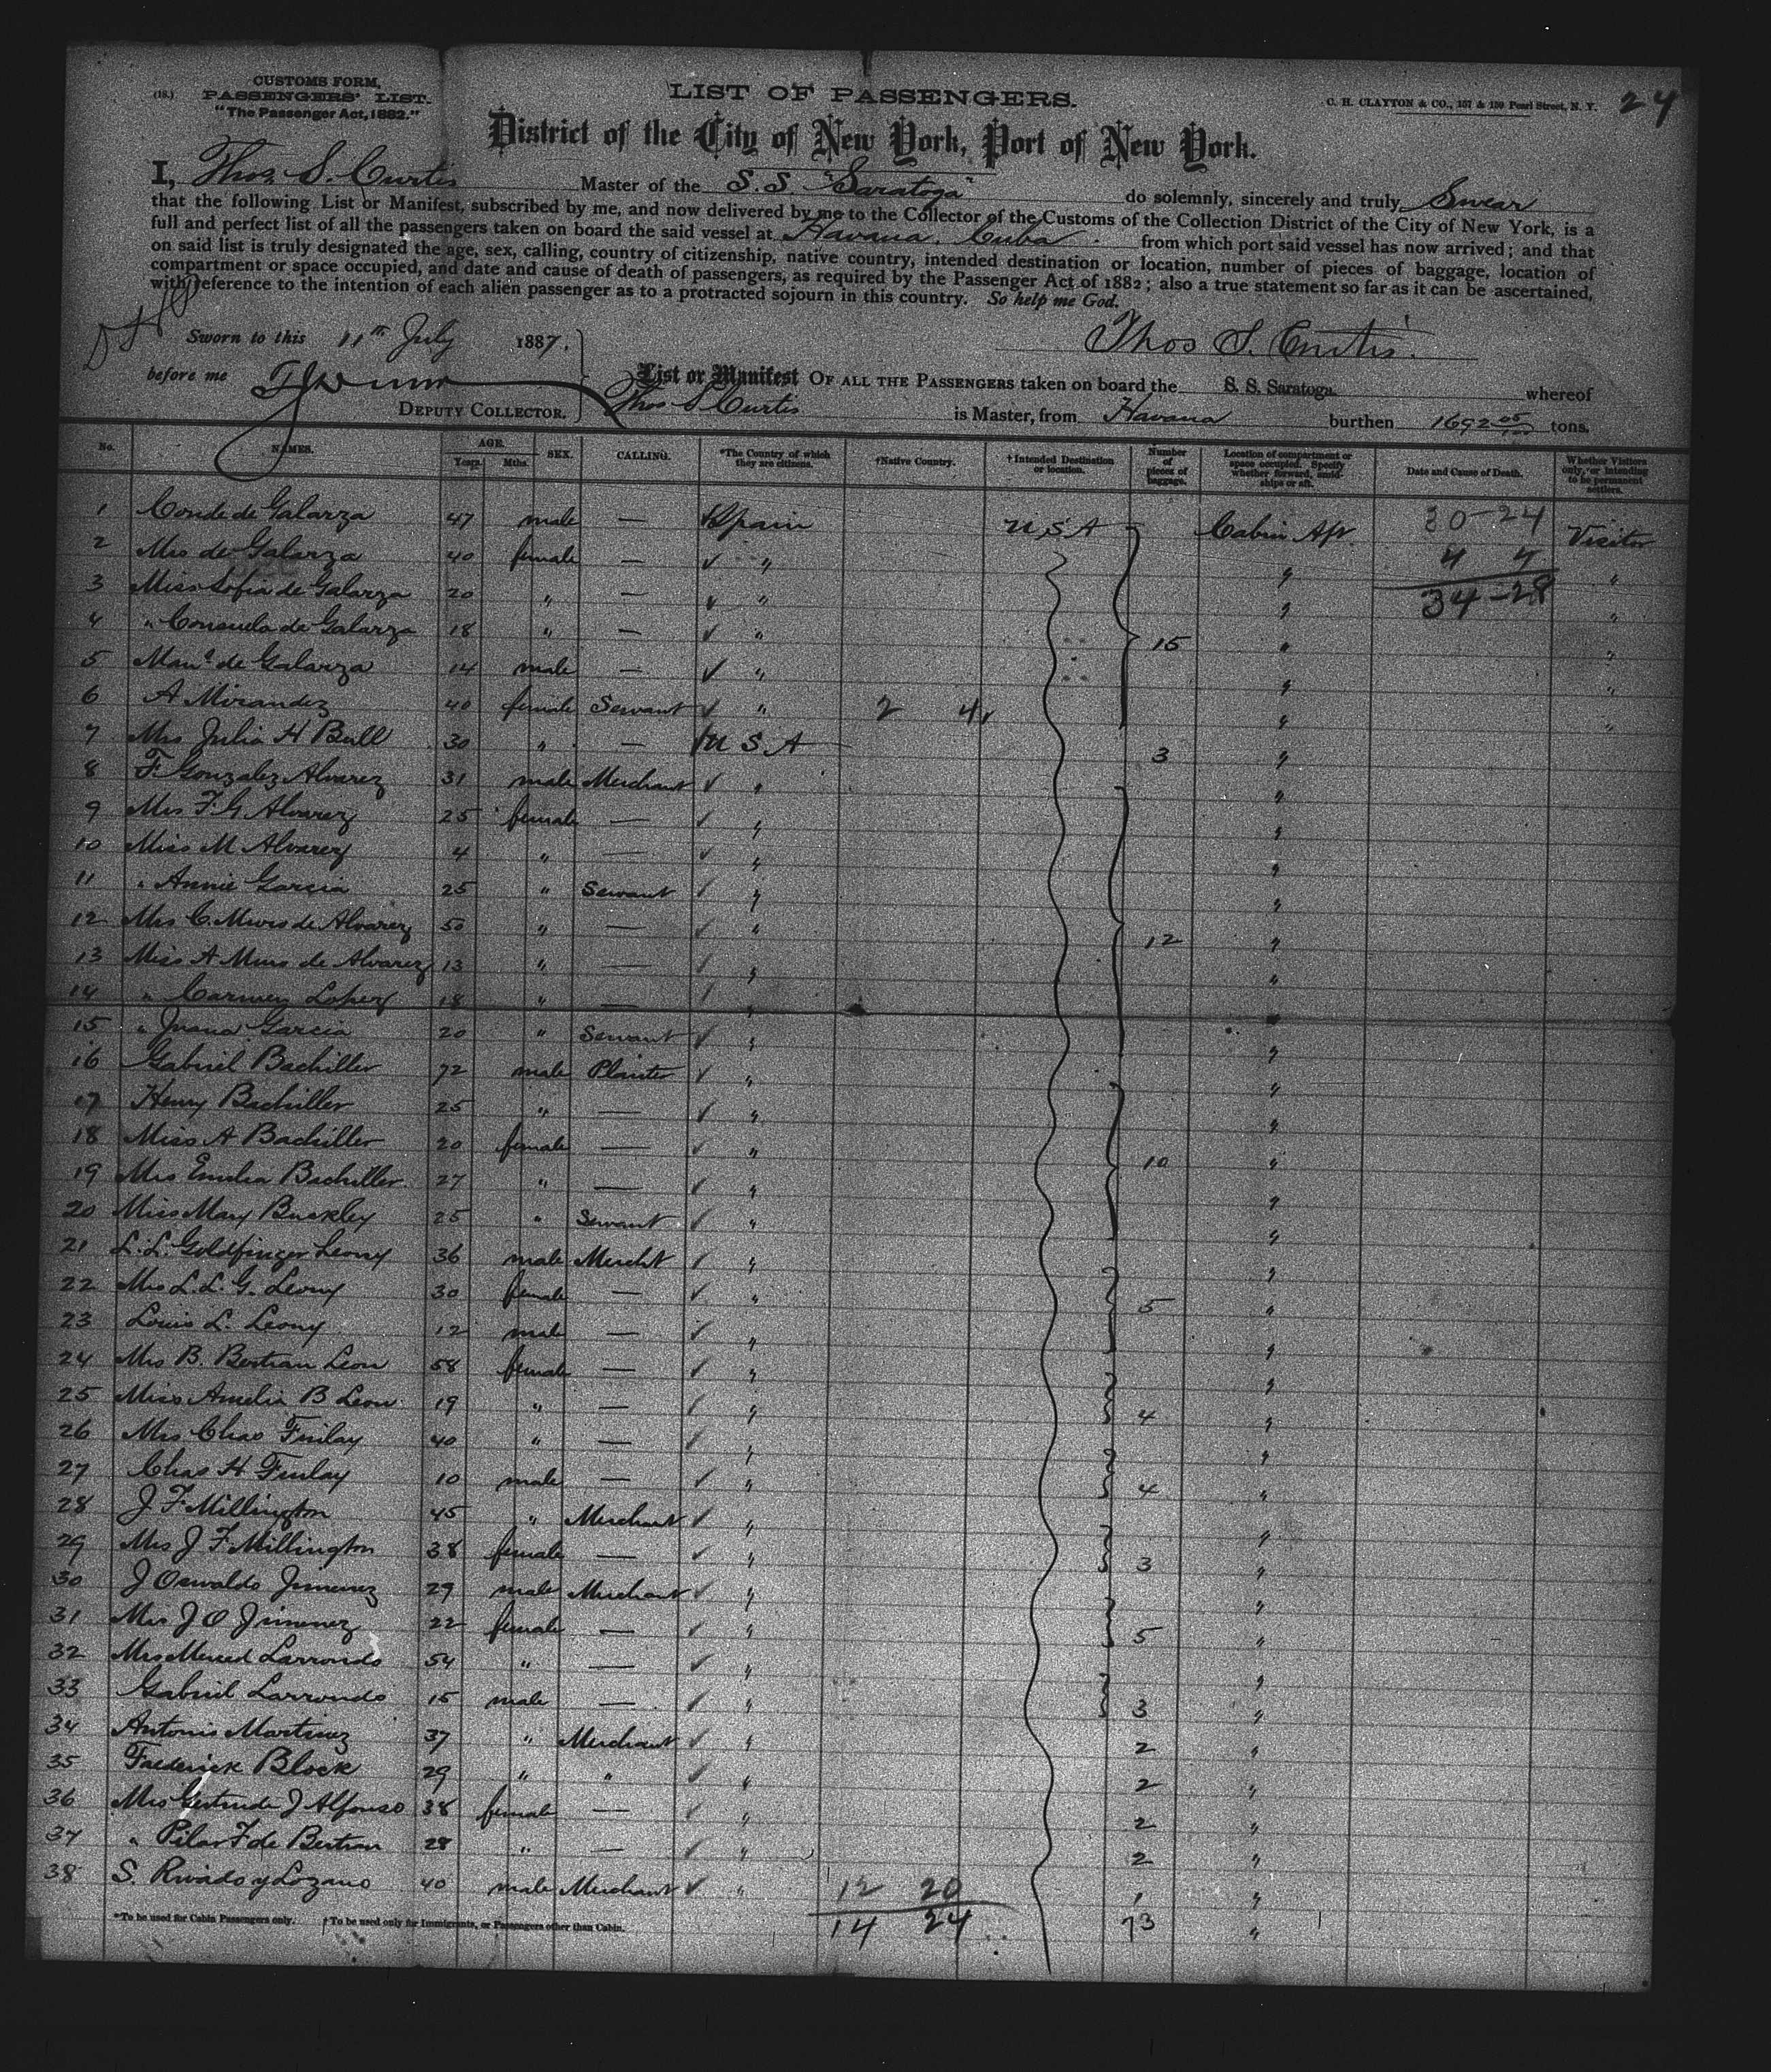 CUSTOMS FORM,
(18.) PASSENGERS' LIST.
"The Passenger Act, 1882."
LIST OF PASSENGERS.
C. H. CLAYTON & CO., 157 & 159 Pearl Street, N. Y. 24
District of the City of New York, Port of New York.
I, Thos. S. Curtis Master of the S. S. "Saratoga" do solemnly, sincerely and truly Swear
that the following List or Manifest, subscribed by me, and now delivered by me to the Collector of the Customs of the Collection District of the City of New York, is a
full and perfect list of all the passengers taken on board the said vessel at Havana, Cuba. from which port said vessel has now arrived; and that
on said list is truly designated the age, sex, calling, country of citizenship, native country, intended destination or location, number of pieces of baggage, location of
compartment or space occupied, and date and cause of death of passengers, as required by the Passenger Act of 1882; also a true statement so far as it can be ascertained,
with reference to the intention of each alien passenger as to a protracted sojourn in this country. So help me God.
Sworn to this 11th July 1887. Thos S. Curtis.
before me
List or Manifest OF ALL THE PASSENGERS taken on board the S. S. Saratoga whereof
DEPUTY COLLECTOR. Thos S Curtis is Master, from Havana burthen 1692 05/100 tons.
No. NAMES. AGE. Years. Mths. SEX. CALLING. *The Country of which they are citizens. †Native Country. †Intended Destination or location. Number of pieces of baggage. Location of compartment or space occupied. Specify whether forward, amidships or aft. Date and Cause of Death. Whether Visitors only, or intending to be permanent settlers.
1 Conde de Galarza 47 male — Spain U S A Cabin Aft. 30-24 Visitor
2 Mrs de Galarza 40 female — ✓ " " 4 4 "
3 Miss Sofia de Galarza 20 " — ✓ " " 34-28 "
4 " Consuelo de Galarza 18 " — ✓ " 15 " "
5 Manl de Galarza 14 male — ✓ " " "
6 A Mirandez 40 female Servant ✓ " 2 4 " "
7 Mrs Julia H Bull 30 " — U S A 3 "
8 F. Gonzalez Alvarez 31 male Merchant ✓ " "
9 Mrs F. G Alvarez 25 female — ✓ " "
10 Miss M Alvarez 4 " — ✓ " "
11 " Annie Garcia 25 " Servant ✓ " "
12 Mrs C. Muro de Alvarez 50 " — ✓ " 12 "
13 Miss A Muro de Alvarez 13 " — ✓ " "
14 " Carmen Lopez 18 " — ✓ " "
15 " Juana Garcia 20 " Servant ✓ " "
16 Gabriel Bachiller 72 male Planter ✓ " "
17 Henry Bachiller 25 " — ✓ " "
18 Miss A Bachiller 20 female — ✓ " 10 "
19 Mrs Emelia Bachiller 27 " — ✓ " "
20 Miss Mary Buckley 25 " Servant ✓ " "
21 L. L. Goldfinger Leony 36 male Mercht ✓ " "
22 Mrs L. L. G. Leony 30 female — ✓ " 5 "
23 Louis L. Leony 12 male — ✓ " "
24 Mrs B. Bertran Leon 58 female — ✓ " "
25 Miss Amelia B Leon 19 " — ✓ " 4 "
26 Mrs Chas Finlay 40 " — ✓ " "
27 Chas H Finlay 10 male — ✓ " 4 "
28 J F Millington 45 " Merchant ✓ " "
29 Mrs J F Millington 38 female — ✓ " 3 "
30 J Oswaldo Jimenez 29 male Merchant ✓ " "
31 Mrs J O Jimenez 22 female — ✓ " 5 "
32 Mrs Merced Larrondo 54 " — ✓ " "
33 Gabriel Larrondo 15 male — ✓ " 3 "
34 Antonio Martinez 37 " Merchant ✓ " 2 "
35 Frederick Block 29 " " ✓ " 2 "
36 Mrs Gertrude J Alfonso 38 female — ✓ " 2 "
37 " Pilar F de Bertran 28 " — ✓ " 2 "
38 S. Rivado y Lozano 40 male Merchant ✓ " 12 20 1 "
14 24 73 "
*To be used for Cabin Passengers only. †To be used only for Immigrants, or Passengers other than Cabin.